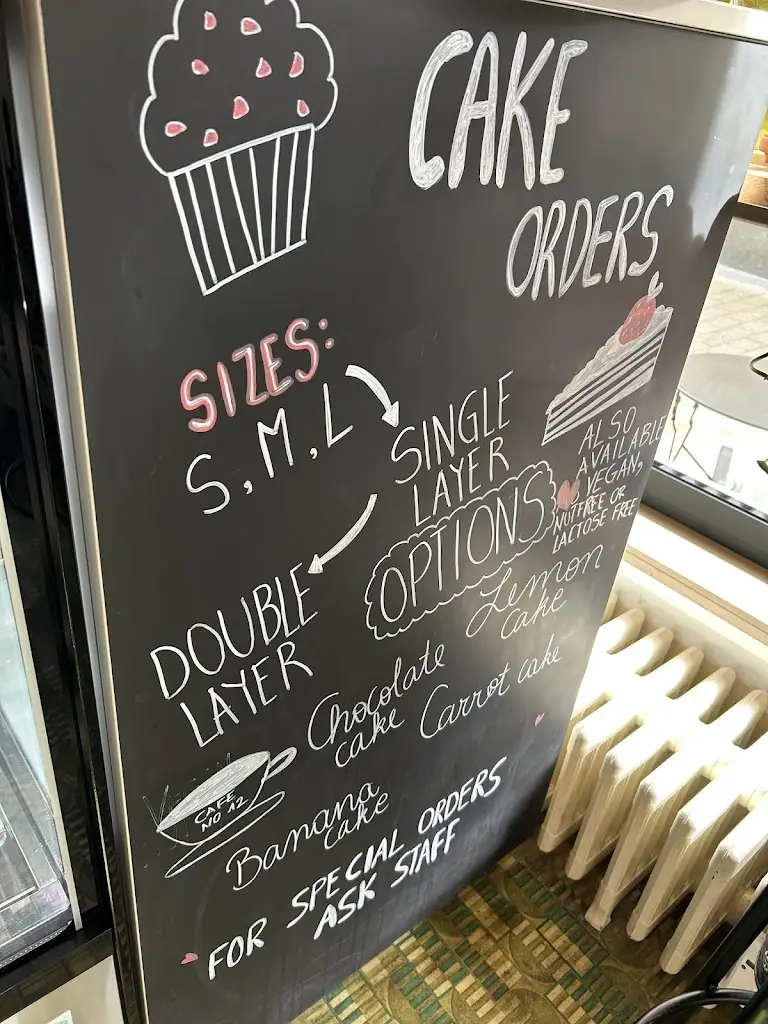 CAKE
ORDERS
SIZES:
S, M, L
SINGLE
LAYER
ALSO
AVAILABLE
VEGAN,
NUTFREE OR
LACTOSE FREE
OPTIONS
DOUBLE
LAYER
Lemon
cake
Chocolate
cake
Carrot cake
CAFE
NO 12
Banana
cake
FOR SPECIAL ORDERS
ASK STAFF